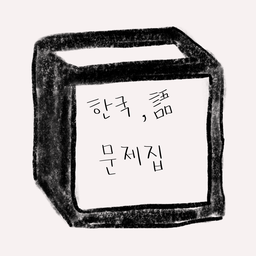 한국,語
문제집